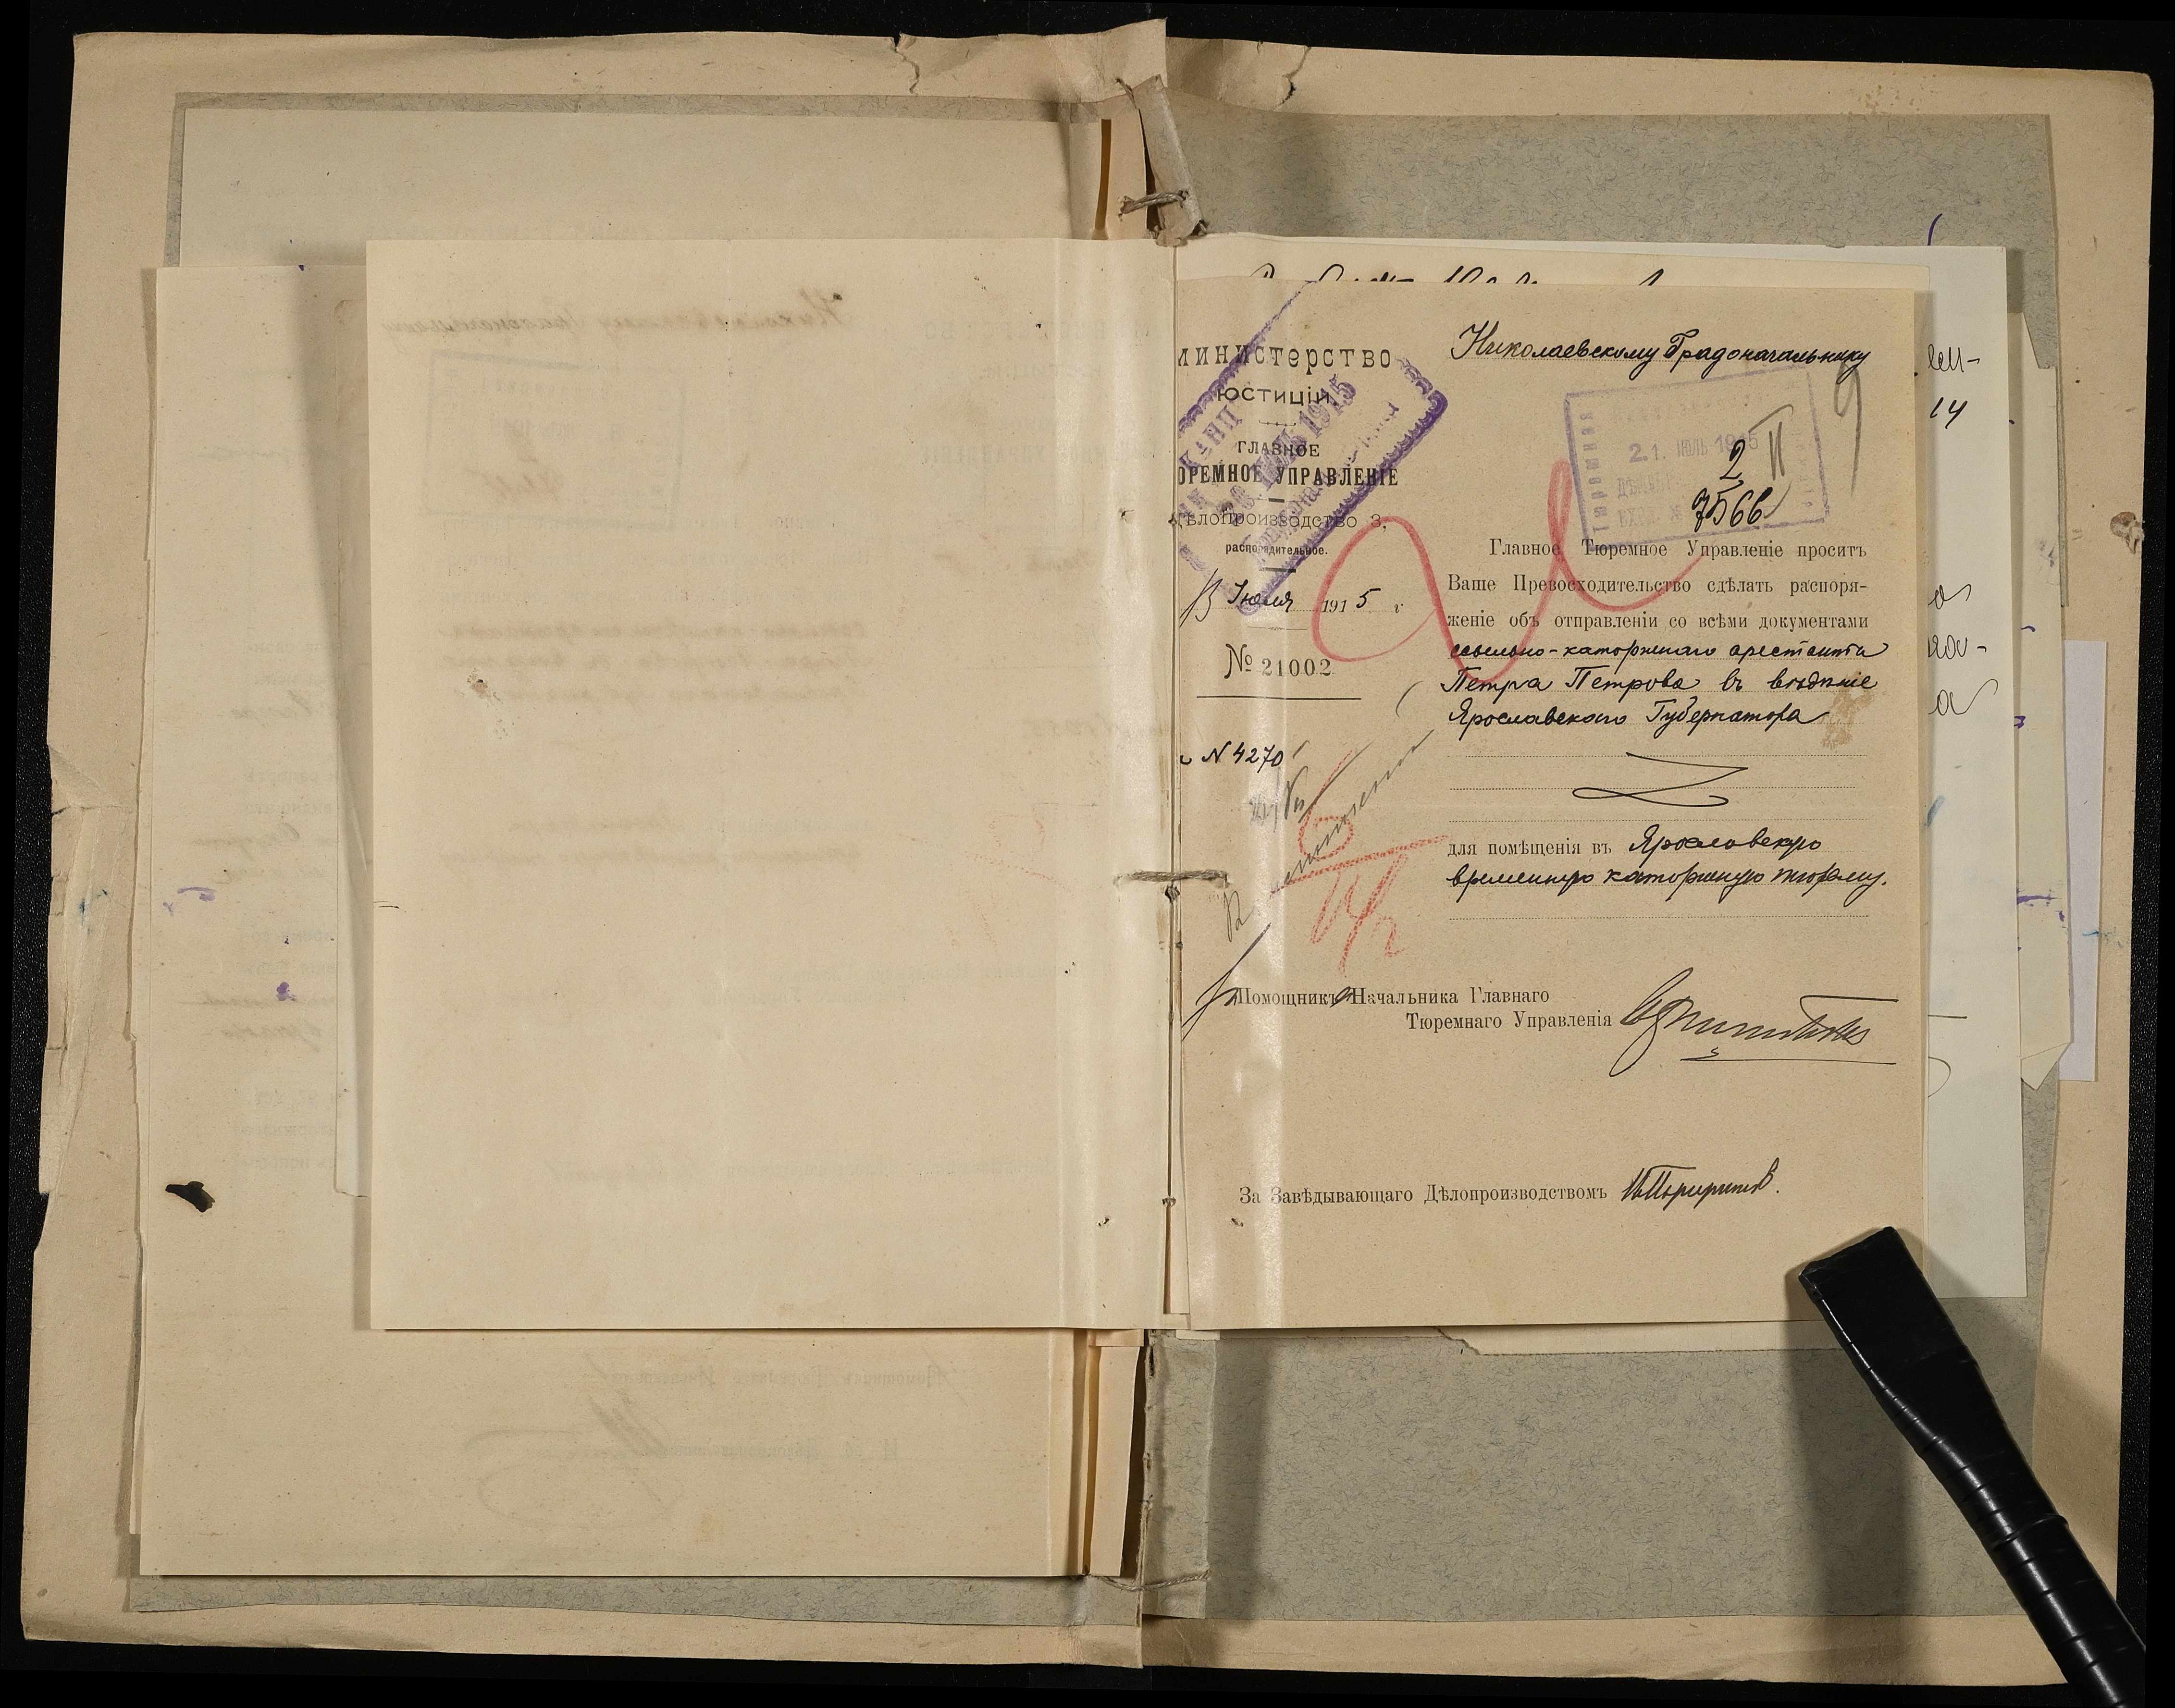 Николаевскому Градоначальнику
министерство
юстиціи
ГЛАВНОЕ
ЮРЕМНОЕ УПРАВЛЕНІЕ
дѣлопроизводство 3.
распорядительное.
13 Іюля 1915 г
№ 21002
N 4270
21. ІЮЛЬ 1915
2
II
7566
9
Главное Тюремное Управленіе проситъ
Ваше Превосходительство сдѣлать распоря-
женіе объ отправленіи со всѣми документами
ссыльно-каторжнаго арестанта
Петра Петрова въ вѣдѣніе
Ярославскаго Губернатора
для помѣщенія въ Ярославскую
временную каторжную тюрьму.
Помощникъ Начальника Главнаго
Тюремнаго Управленія
За Завѣдывающаго Дѣлопроизводствомъ
14